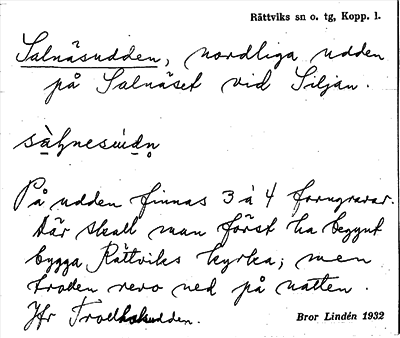 Rättviks sn o. tg, Kopp. l.
Salnäsudden, nordliga udden
på Salnäset vid Siljan.
På udden finnas 3 à 4 forngravar.
Där skall man först ha begynt
bygga Rättviks kyrka; men
trollen revo ned på natten.
Jfr Trollhakudden.
Bror Lindén 1932